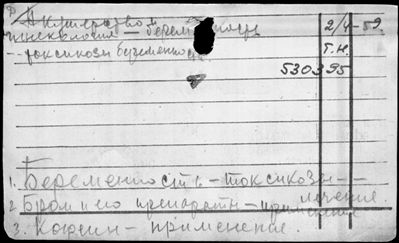 Акушерство и
гинекология – беременность
– токсикозы беременности
2/4-59.
Т.Н.
530395
1. Беременность – токсикозы –
лечение
2. Бром и его препараты – применение
3. Кофеин – применение.